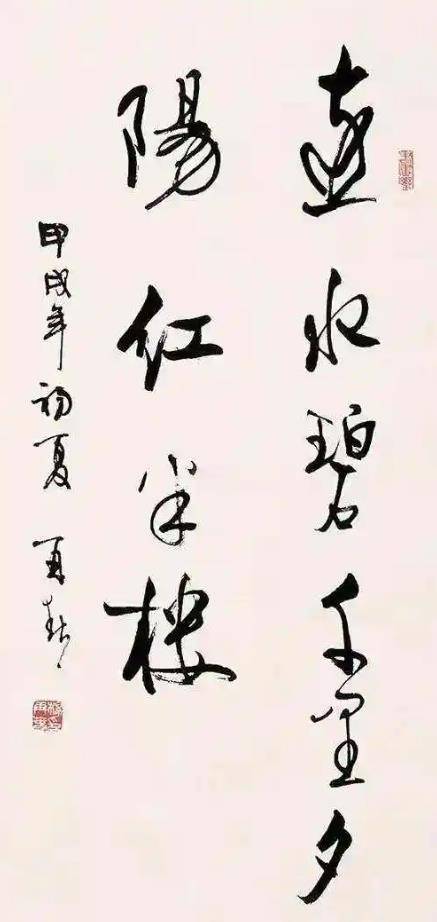 遠水碧千里夕
陽紅半樓
甲戌年初夏